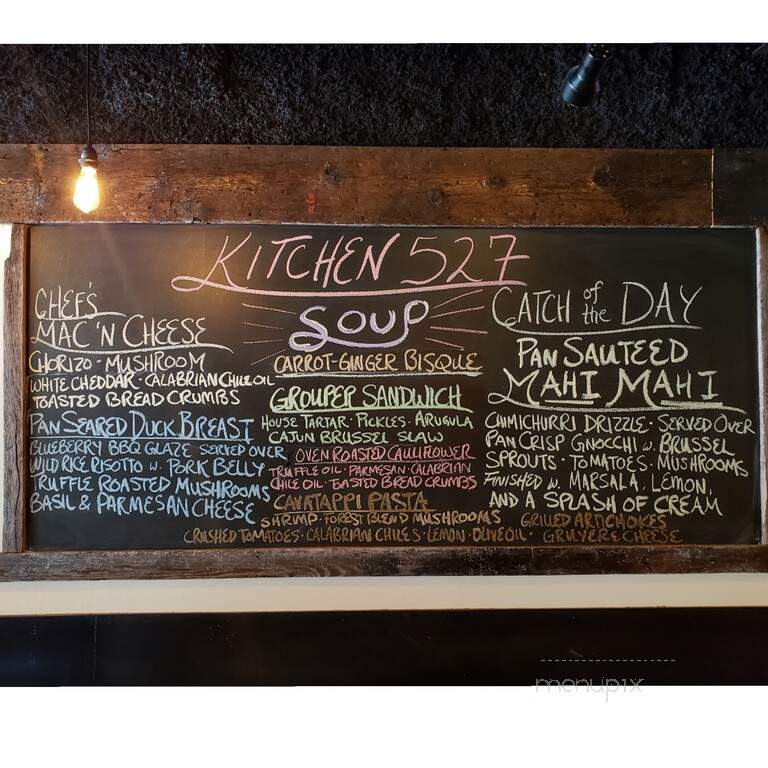 KITCHEN 527
CHEF'S
MAC 'N CHEESE
CHORIZO · MUSHROOM
WHITE CHEDDAR · CALABRIAN CHILE OIL
TOASTED BREAD CRUMBS
PAN SEARED DUCK BREAST
BLUEBERRY BBQ GLAZE SERVED OVER
WILD RICE RISOTTO W. PORK BELLY
TRUFFLE ROASTED MUSHROOMS
BASIL & PARMESAN CHEESE
SOUP
CARROT-GINGER BISQUE
GROUPER SANDWICH
HOUSE TARTAR · PICKLES · ARUGULA
CAJUN BRUSSEL SLAW
OVEN ROASTED CAULIFLOWER
TRUFFLE OIL · PARMESAN · CALABRIAN
CHILE OIL · TOASTED BREAD CRUMBS
CAVATAPPI PASTA
SHRIMP · FOREST BLEND MUSHROOMS · GRILLED ARTICHOKES
CRUSHED TOMATOES · CALABRIAN CHILES · LEMON · OLIVE OIL · GRUYERE CHEESE
CATCH of the DAY
PAN SAUTEED
MAHI MAHI
CHIMICHURRI DRIZZLE · SERVED OVER
PAN CRISP GNOCCHI W. BRUSSEL
SPROUTS · TOMATOES · MUSHROOMS
FINISHED W. MARSALA, LEMON,
AND A SPLASH OF CREAM
menupix